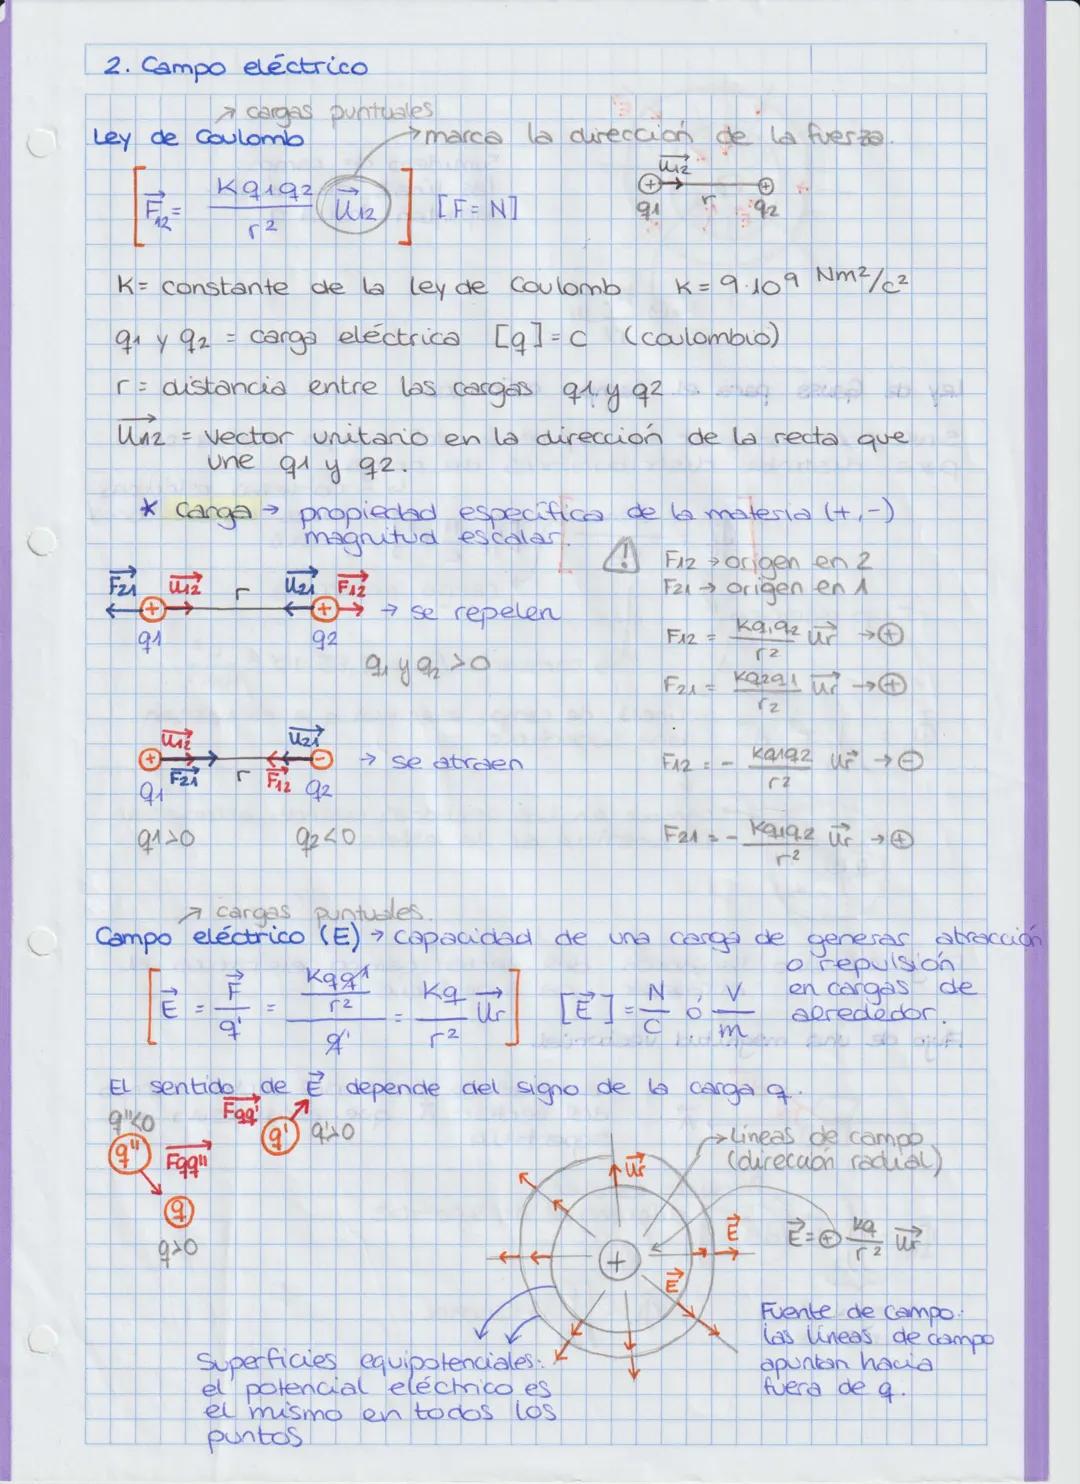 2. Campo eléctrico
→ cargas puntuales
Ley de Coulomb
→ marca la dirección de la fuerza.
F₁₂ = Kq1q2 / r² u₁₂ [F = N]
u₁₂
+ +
q1 r q2
K = constante de la ley de Coulomb K = 9·10⁹ Nm²/C²
q1 y q2 = carga eléctrica [q] = C (coulombio)
r = distancia entre las cargas q1 y q2.
u₁₂ = vector unitario en la dirección de la recta que
une q1 y q2.
* Carga → propiedad específica de la materia (+,-)
magnitud escalar.
! F12 → origen en 2
F21 → origen en 1
F21 u12 r u21 F12
+ + → se repelen
q1 q2
q1 y q2 > 0
F12 = Kq1q2 / r² ur → ⊕
F21 = Kq2q1 / r² ur → ⊕
u12 u21
+ - → se atraen
F21 r F12
q1 q2
q1>0 q2<0
F12 = - Kq1q2 / r² ur → ⊖
F21 = - Kq1q2 / r² ur → ⊕
→ cargas puntuales.
Campo eléctrico (E) → capacidad de una carga de generar atracción
o repulsión
en cargas de
alrededor.
E = F / q' = (Kqq' / r²) / q' = Kq / r² ur [E] = N/C ó V/m
El sentido de E depende del signo de la carga q.
q''<0 Fqq' q'>0
q'' Fqq'' q'
q
q>0
→ Líneas de campo
(dirección radial)
ur
+
E
E
E = ⊕ Kq / r² ur
Fuente de campo:
las líneas de campo
apuntan hacia
fuera de q.
Superficies equipotenciales:
el potencial eléctrico es
el mismo en todos los
puntos